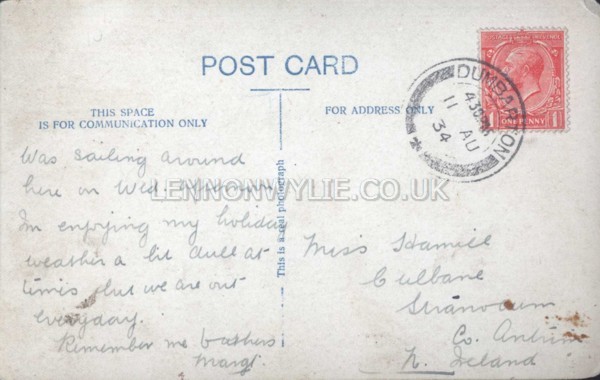 POST CARD
THIS SPACE
IS FOR COMMUNICATION ONLY
FOR ADDRESS ONLY
DUMBARTON
4.30PM
11 AU
34
ONE PENNY
Was sailing around
here on Wed.
LENNONWYLIE.CO.UK
Im enjoying my holiday
weather a bit dull at
times but we are out
everyday.
Remember me to others
Margt.
This is a real photograph
Miss Hamill
Culbane
Stranocum
Co. Antrim
N. Ireland